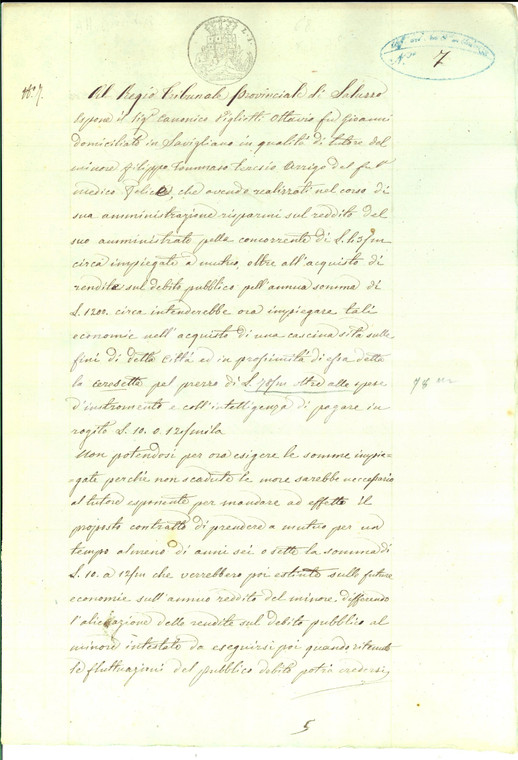 7
N.º 7
Al Regio Tribunale Provinciale di Saluzzo
espone il Sig.r Canonico Ottavio fu
domiciliato in Savigliano in qualità di tutore del
minore Filippo Tommaso Arrigo del fu
medico Felice, che avendo realizzati nel corso di
sua amministrazione risparmi sul reddito del
suo amministrato pella concorrente di L.
circa impiegate a mutuo, oltre all'acquisto di
rendite sul debito pubblico pell'annua somma di
L. 1200. circa intenderebbe ora impiegare tali
economie nell'acquisto di una cascina sita sulle
fini di detta Città ed in prossimità di essa detta
la pel prezzo di L. oltre alle spese
d'instromento e coll'intelligenza di pagare in
rogito L. 10. o 12/mila
Non potendosi per ora esigere le somme impie-
gate perchè non scadute le more sarebbe necessario
al tutore esponente per mandare ad effetto il
proposto contratto di prendere a mutuo per un
tempo almeno di anni sei o sette la somma di
L. 10. a 12/m che verrebbero poi estinte sulle future
economie sull'annuo reddito del minore, differendo
l'alienazione delle rendite sul debito pubblico al
minore intestate da eseguirsi poi quando ritenute
le fluttuazioni del pubblico debito potrà credersi
5